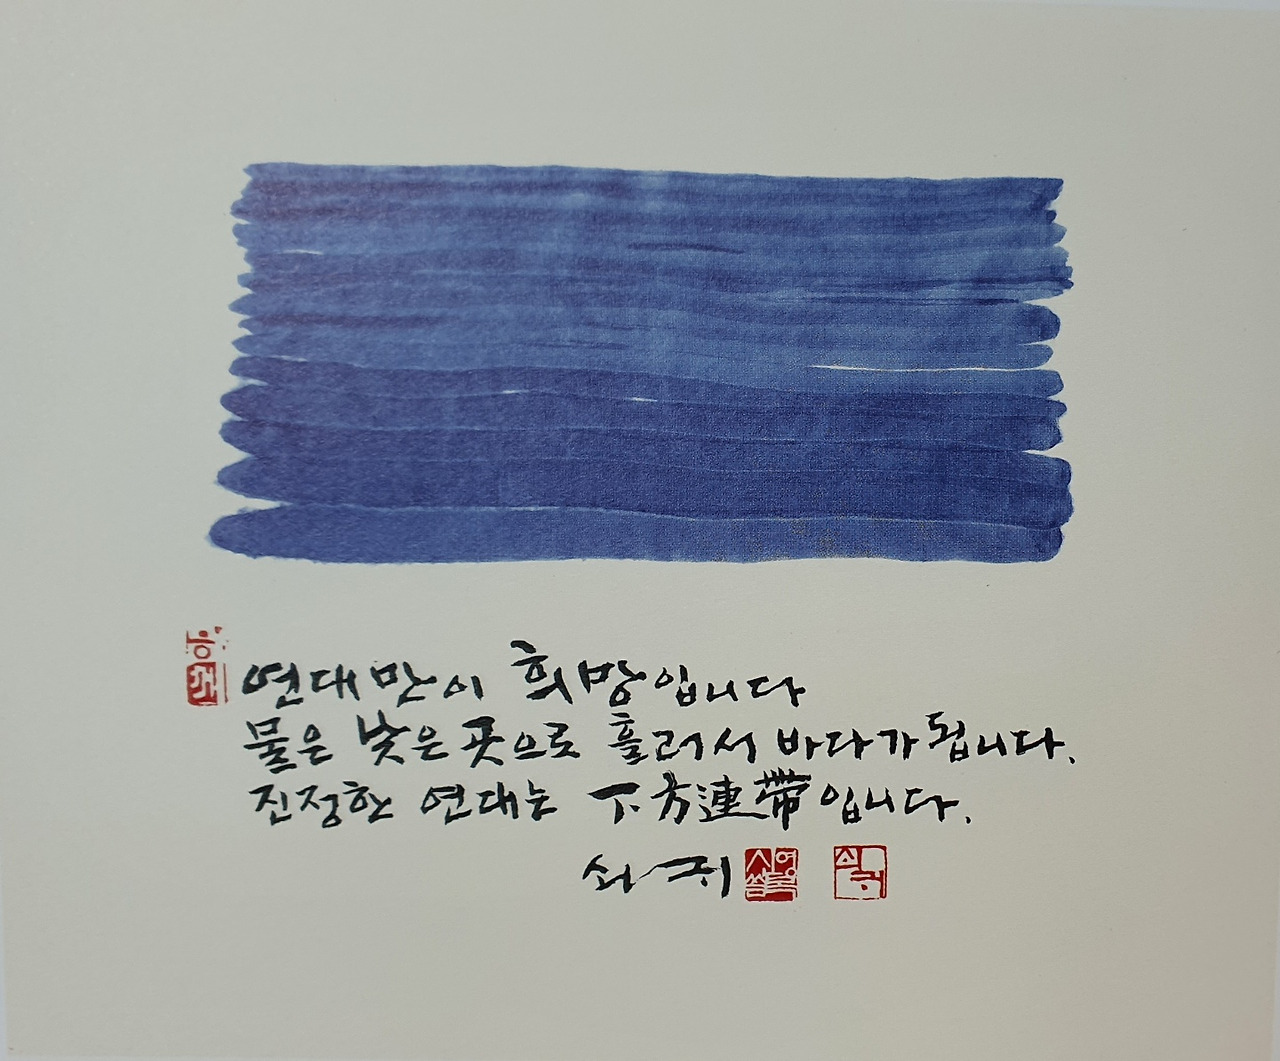 연대만이 희망입니다
물은 낮은 곳으로 흘러서 바다가 됩니다.
진정한 연대는 下方連帶입니다.
쇠귀